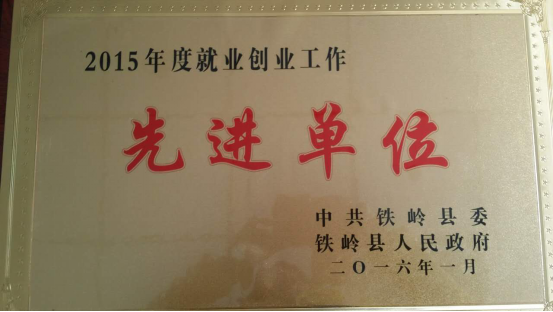 2015年度就业创业工作
先进单位
中共铁岭县委
铁岭县人民政府
二〇一六年一月